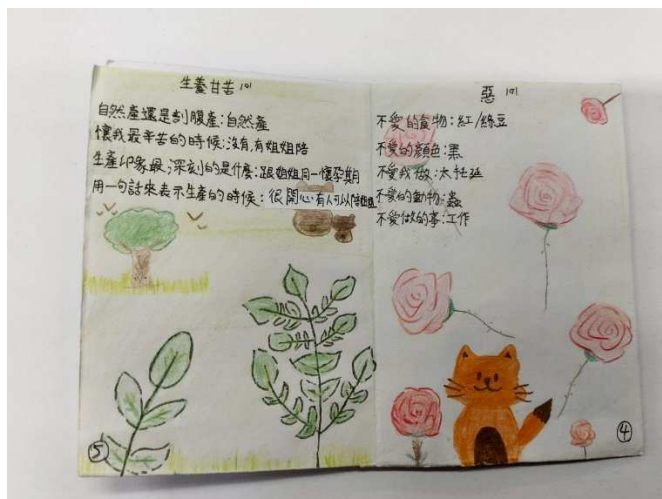 生養甘苦 101
自然產還是剖腹產:自然產
懷我最辛苦的時候:沒有,有姐姐陪
生產印象最深刻的是什麼:跟姐姐同一懷孕期
用一句話來表示生產的時候:很開心有人可以陪
⑤
惡 101
不愛的食物:紅/綠豆
不愛的顏色:黑
不愛我做:太牡延
不愛的動物:蟲
不愛做的事:工作
④